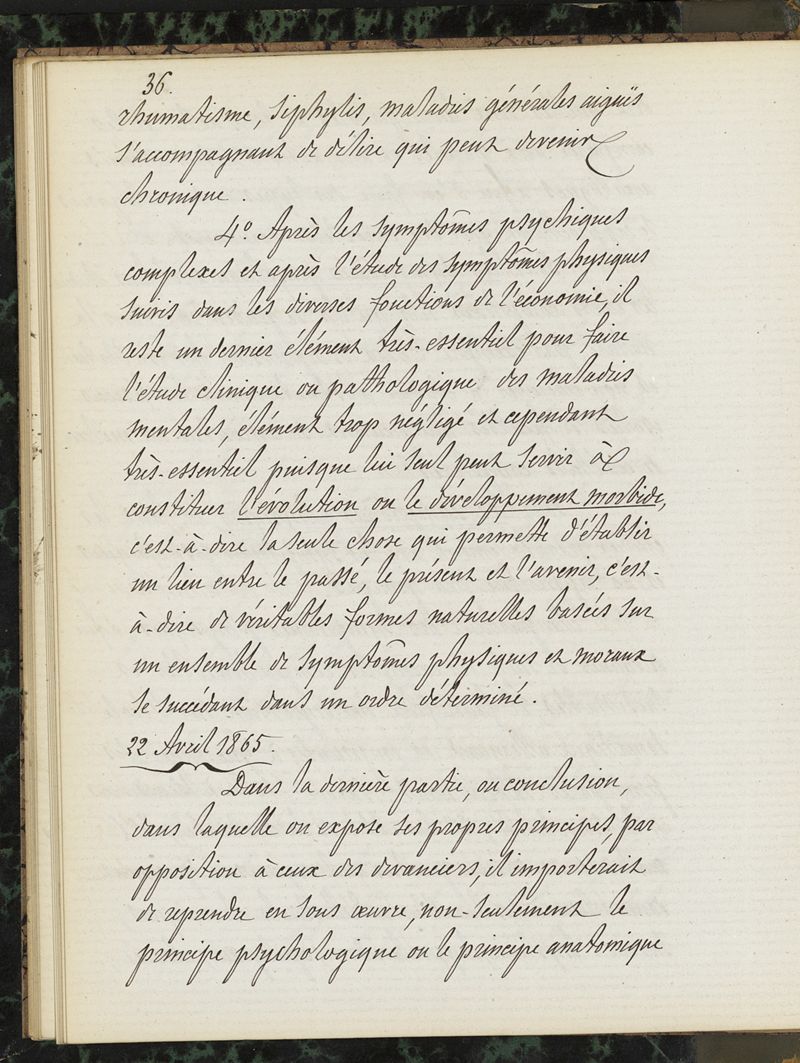 36.
rhumatisme, siphylis, maladies générales aiguës
s'accompagnant de délire qui peut devenir
chronique.
4º. Après les symptômes psychiques
complexes et après l'étude des symptômes physiques
suivis dans les diverses fonctions de l'économie, il
reste un dernier élément très-essentiel pour faire
l'étude clinique ou pathologique des maladies
mentales, élément trop négligé et cependant
très-essentiel puisque lui seul peut servir à
constituer l'évolution ou le développement morbide,
c'est-à-dire la seule chose qui permette d'établir
un lien entre le passé, le présent et l'avenir, c'est-
à-dire de véritables formes naturelles basées sur
un ensemble de symptômes physiques et moraux
se succédant dans un ordre déterminé.
22 Avril 1865.
Dans la dernière partie, ou conclusion,
dans laquelle on expose ses propres principes, par
opposition à ceux des devanciers, il importerait
de reprendre en sous œuvre, non-seulement le
principe psychologique ou le principe anatomique